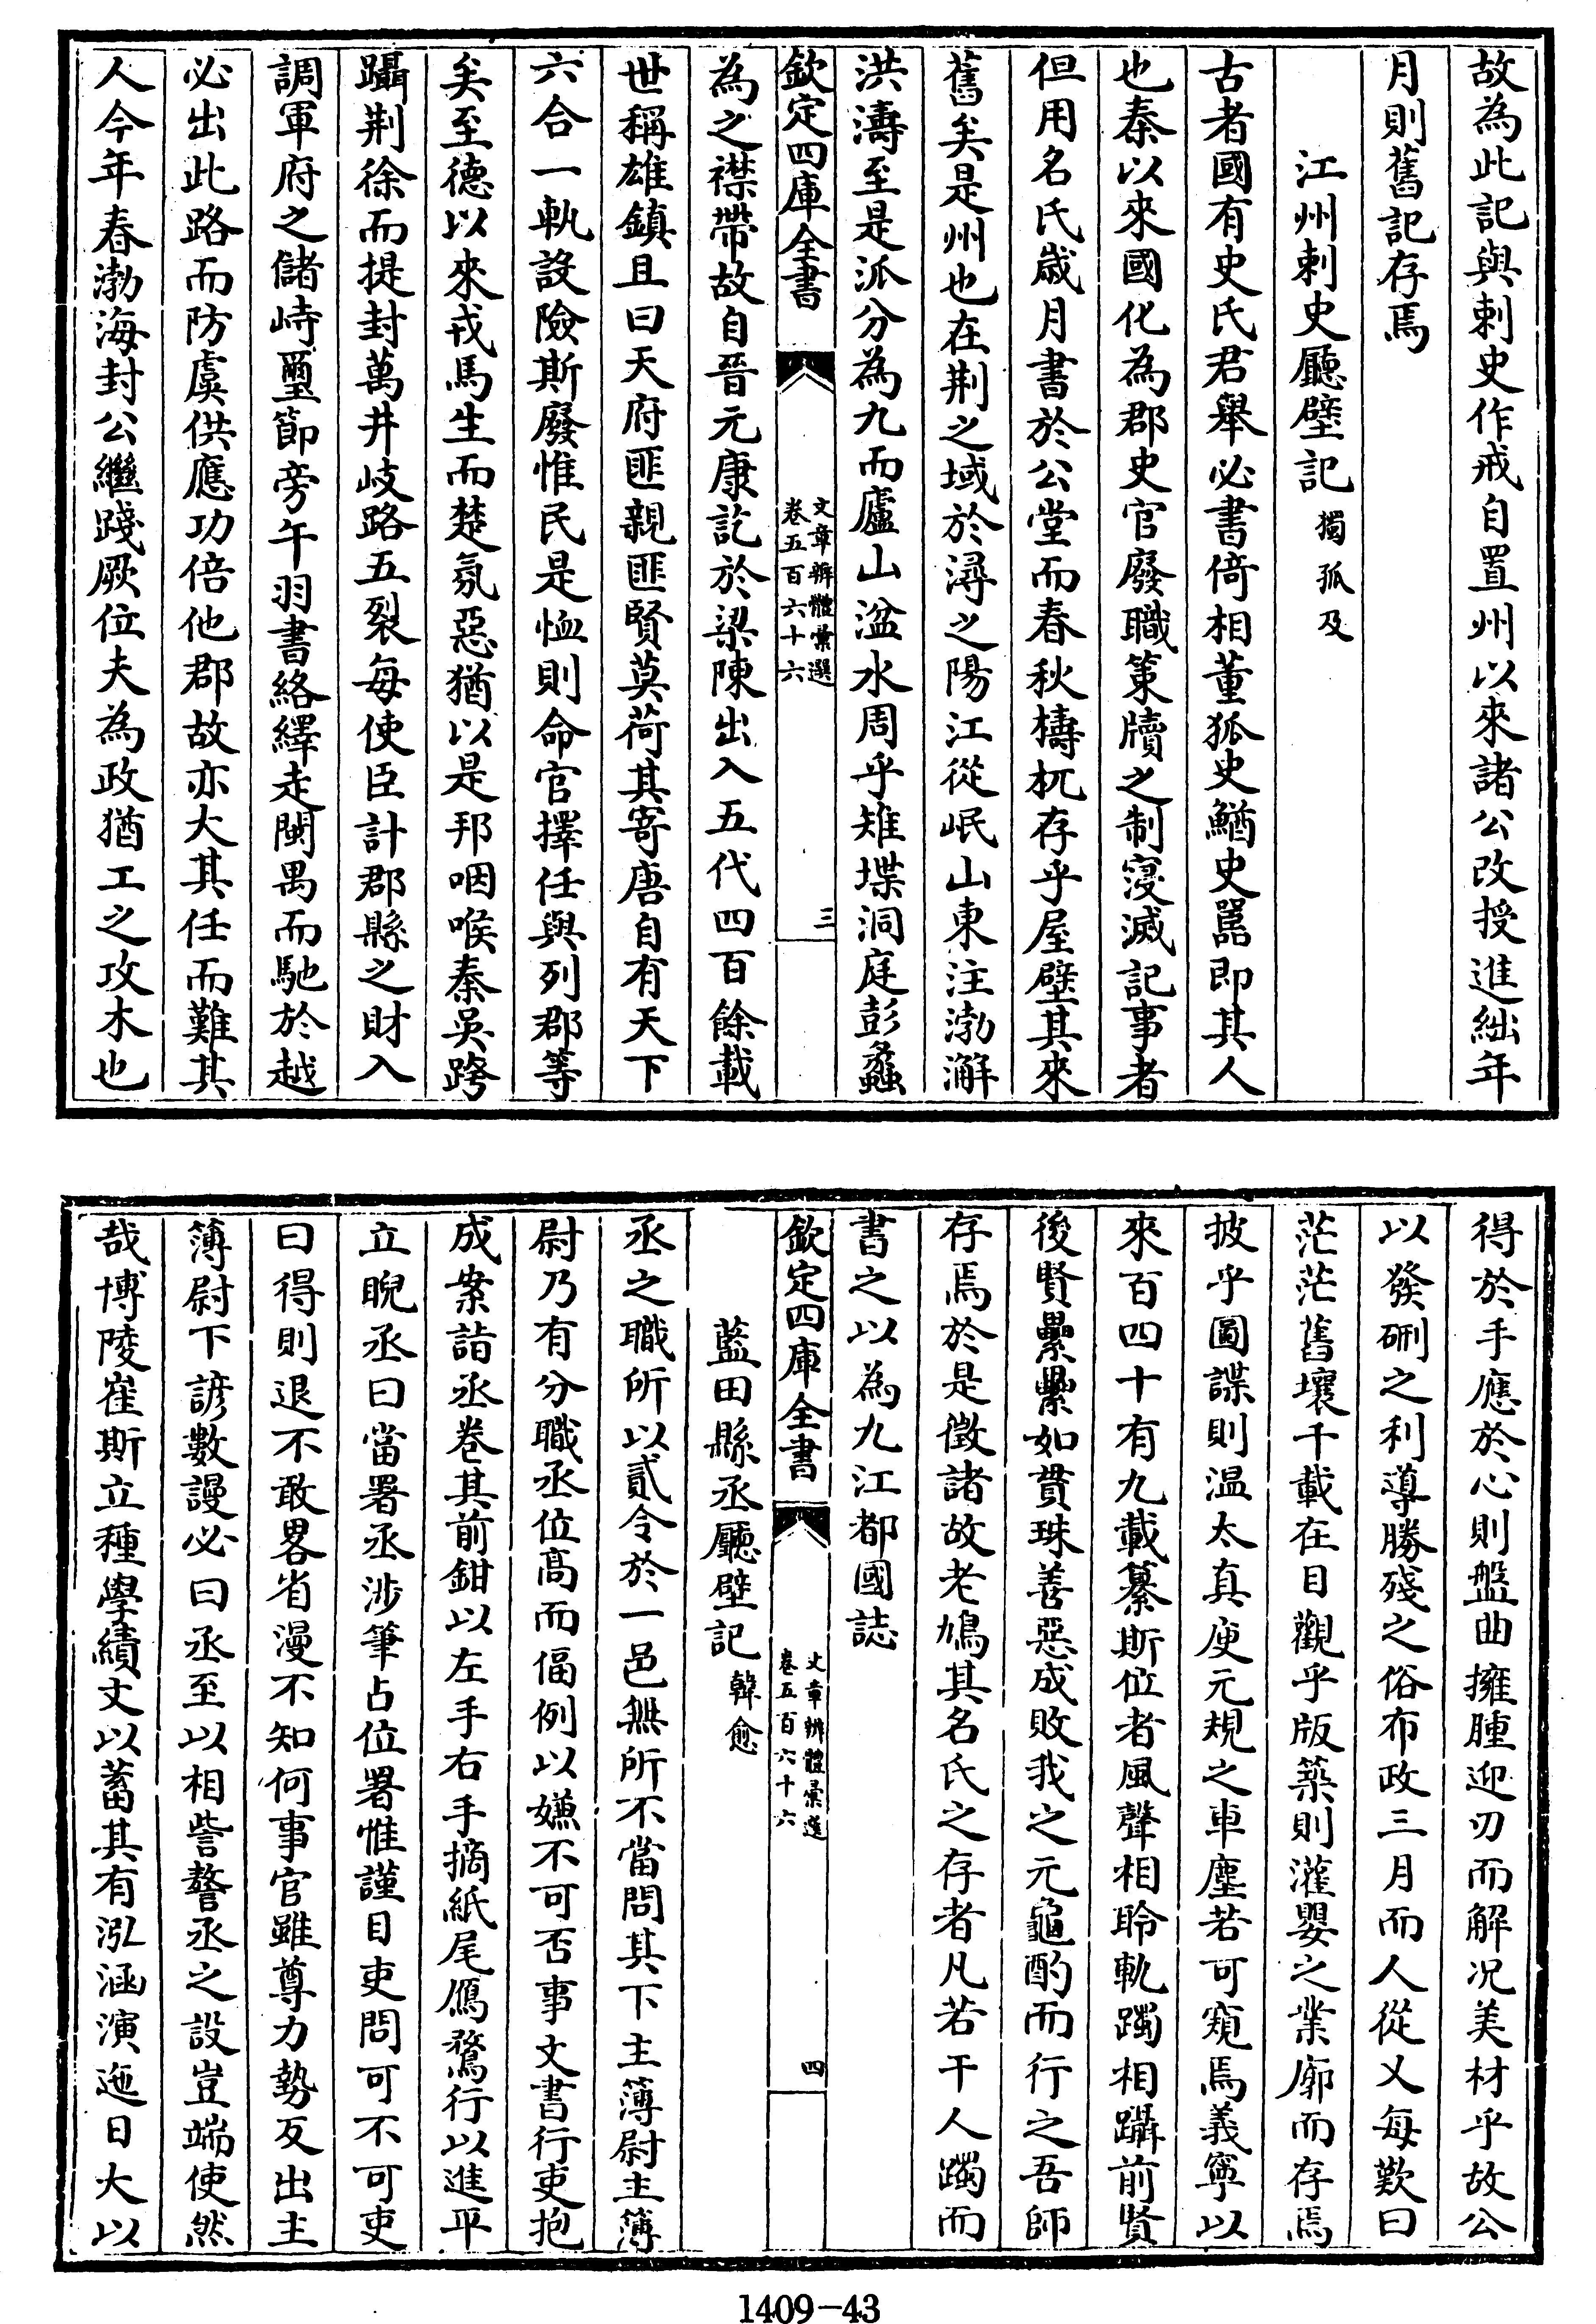 故為此記與刺史作戒自置州以來諸公改授進絀年
月則舊記存焉
江州刺史廳壁記 獨孤及
古者國有史氏君舉必書倚相董狐史鰌史嚚即其人
也秦以來國化為郡史官廢職策牘之制寖滅記事者
但用名氏歲月書於公堂而春秋檮杌存乎屋壁其來
舊矣是州也在荆之域於潯之陽江從岷山東注渤澥
洪濤至是派分為九而廬山湓水周乎雉堞洞庭彭蠡
欽定四庫全書
文章辨體彙選
卷五百六十六
三
為之襟帶故自晉元康訖於梁陳出入五代四百餘載
世稱雄鎮且曰天府匪親匪賢莫荷其寄唐自有天下
六合一軌設險斯廢惟民是恤則命官擇任與列郡等
矣至德以來戎馬生而楚氛惡猶以是邦咽喉秦吳跨
躡荆徐而提封萬井岐路五裂每使臣計郡縣之財入
調軍府之儲峙璽節旁午羽書絡繹走閩禺而馳於越
必出此路而防虞供應功倍他郡故亦大其任而難其
人今年春渤海封公繼踐厥位夫為政猶工之攻木也
得於手應於心則盤曲擁腫迎刃而解况美材乎故公
以發硎之利導勝殘之俗布政三月而人從乂每歎曰
茫茫舊壤千載在目觀乎版築則灌嬰之業廓而存焉
披乎圖諜則温太真庾元規之車塵若可窺焉義寧以
來百四十有九載纂斯位者風聲相聆軌躅相躡前賢
後賢纍纍如貫珠善惡成敗我之元龜酌而行之吾師
存焉於是徵諸故老鳩其名氏之存者凡若干人躅而
書之以為九江都國誌
欽定四庫全書
文章辨體彙選
卷五百六十六
四
藍田縣丞廳壁記 韓愈
丞之職所以貳令於一邑無所不當問其下主簿尉主簿
尉乃有分職丞位高而偪例以嫌不可否事文書行吏抱
成案詣丞卷其前鉗以左手右手摘紙尾鴈鶩行以進平
立睨丞曰當署丞涉筆占位署惟謹目吏問可不可吏
曰得則退不敢畧省漫不知何事官雖尊力勢反出主
簿尉下諺數謾必曰丞至以相訾謷丞之設豈端使然
哉博陵崔斯立種學績文以蓄其有泓涵演迤日大以
1409-43